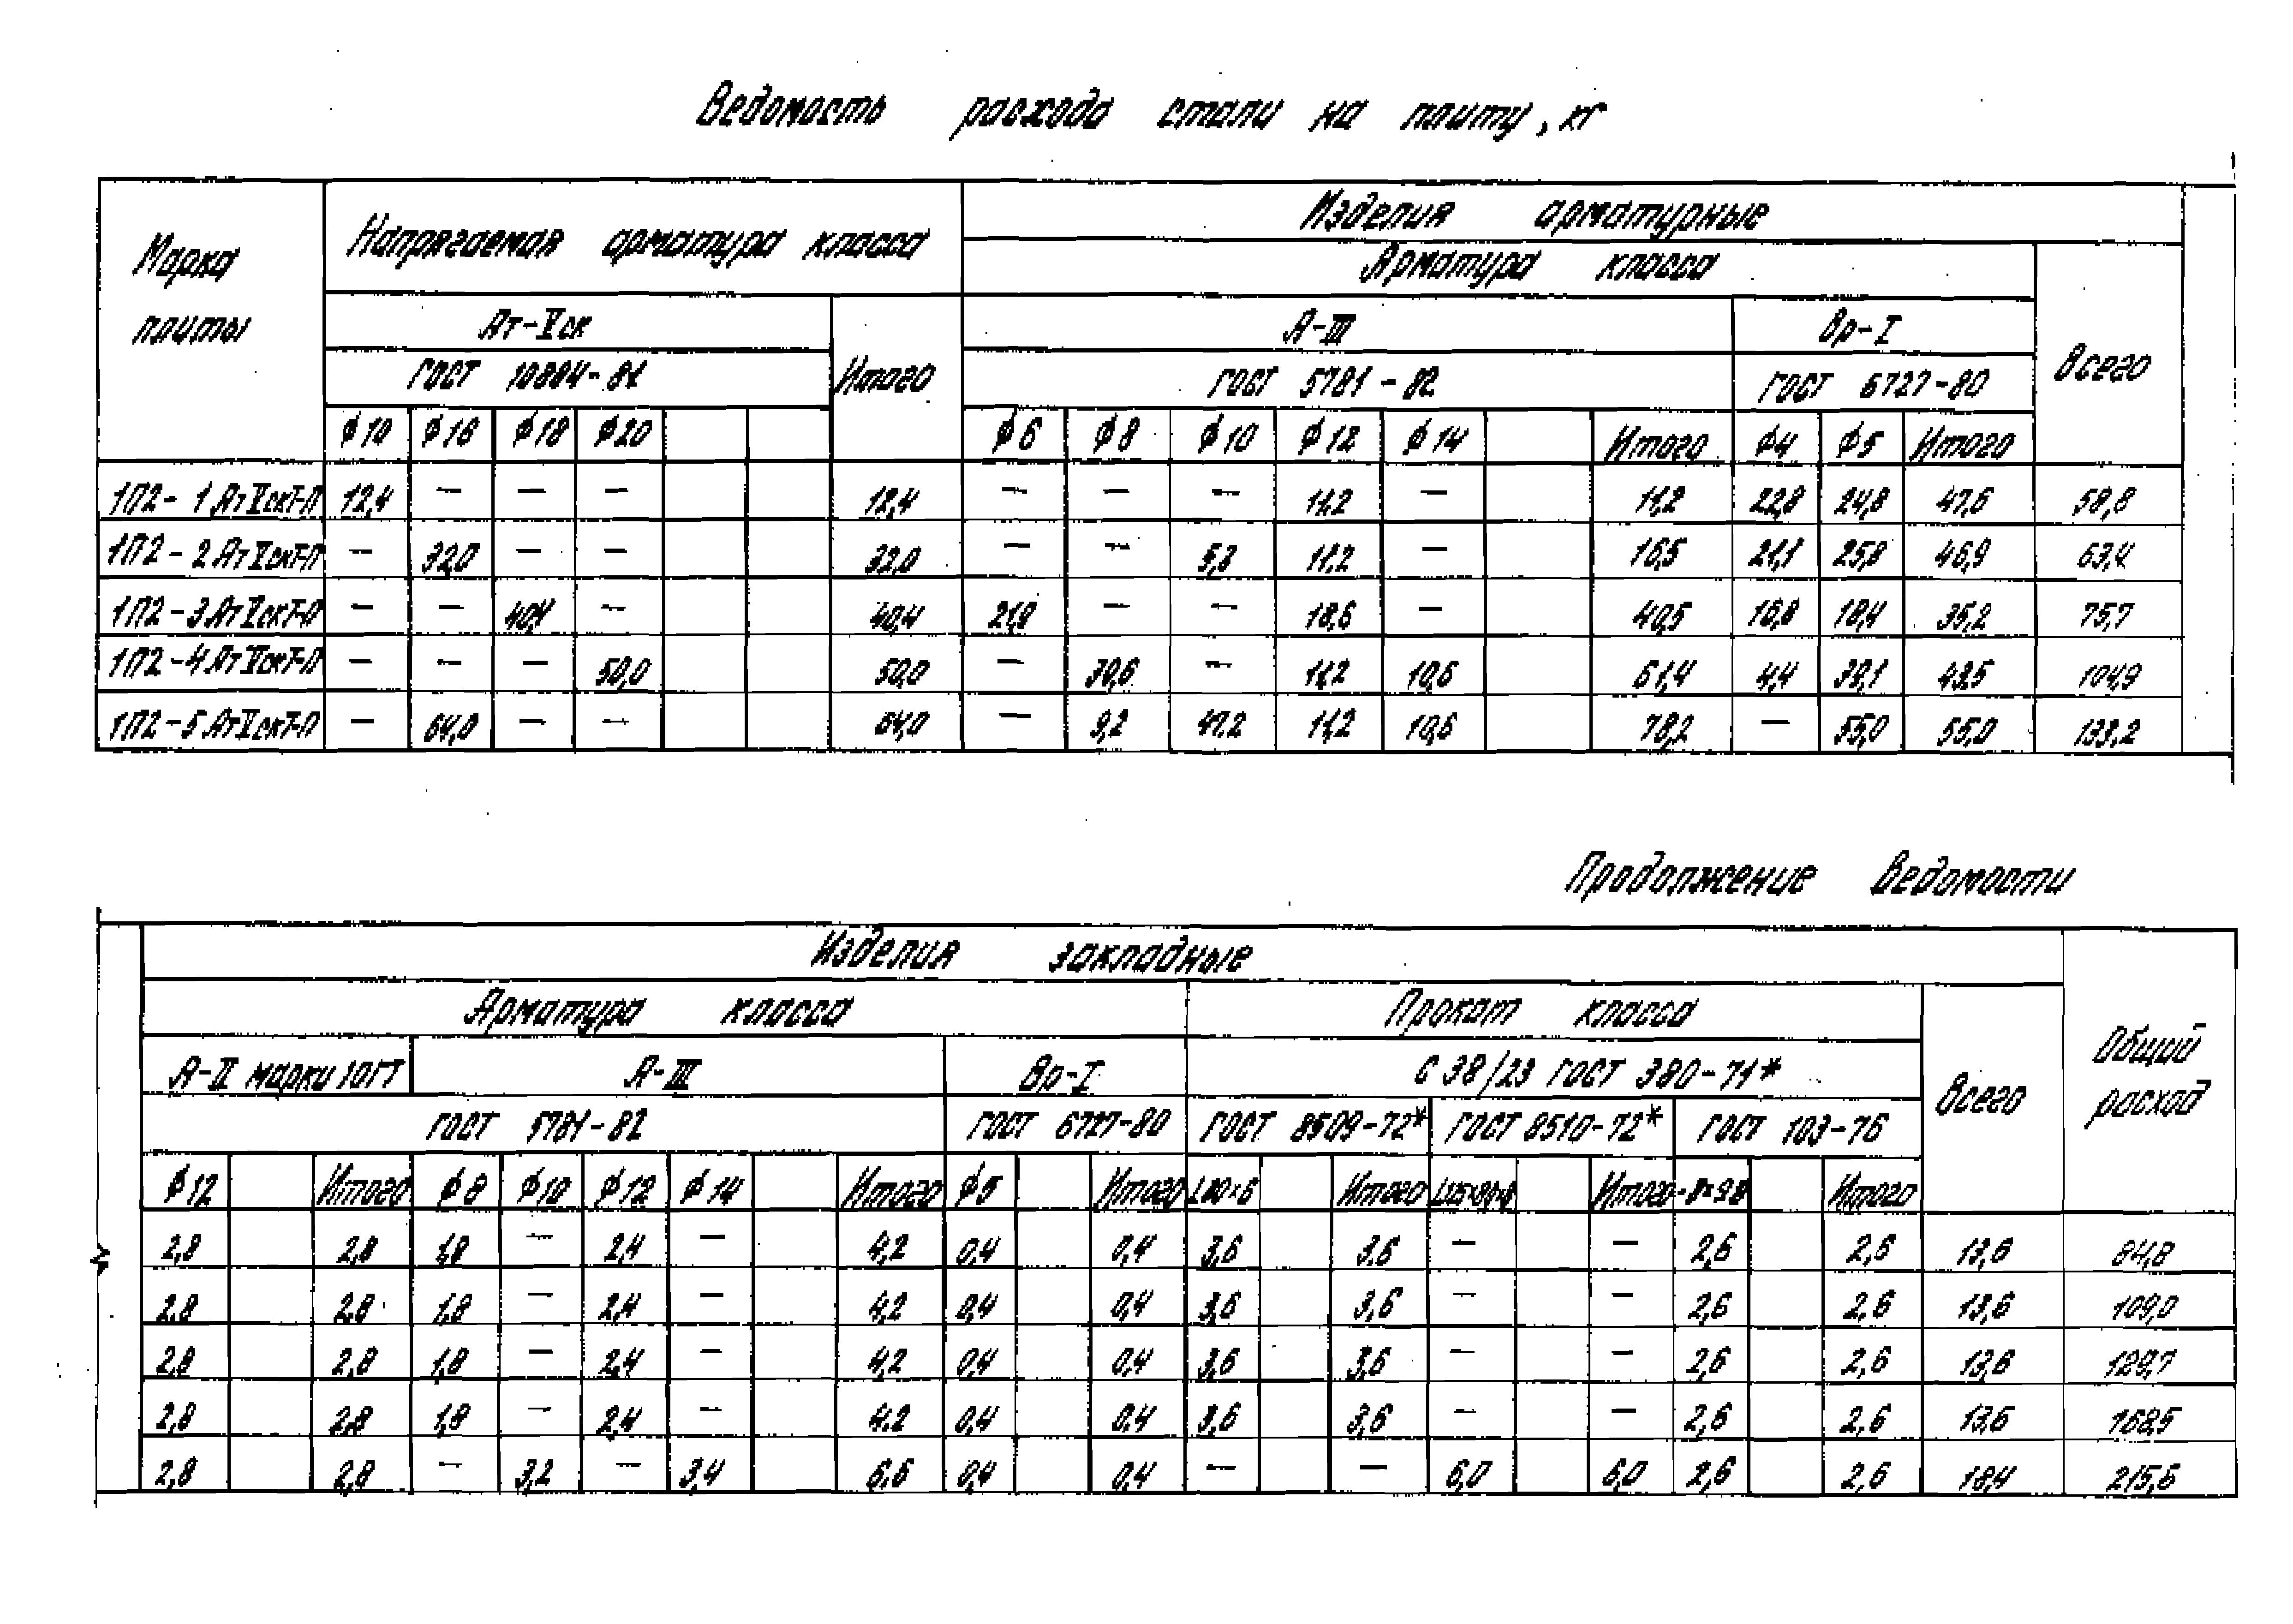 Ведомость расхода стали на плиту, кг
Марка плиты
Напрягаемая арматура класса
Изделия арматурные
Арматура класса
Ат-Vск
А-III
Вр-I
Всего
ГОСТ 10884-81
Итого
ГОСТ 5781-82
ГОСТ 6727-80
ϕ10 ϕ16 ϕ18 ϕ20 ϕ6 ϕ8 ϕ10 ϕ12 ϕ14 Итого ϕ4 ϕ5 Итого
1П2-1АтVскТ-П 12,4 — — — 12,4 — — — 11,2 — 11,2 22,8 24,8 47,6 58,8
1П2-2АтVскТ-П — 32,0 — — 32,0 — — 5,3 11,2 — 16,5 21,1 25,8 46,9 63,4
1П2-3АтVскТ-П — — 40,4 — 40,4 21,9 — — 18,6 — 40,5 16,8 18,4 35,2 75,7
1П2-4АтVскТ-П — — — 50,0 50,0 — 39,6 — 11,2 10,6 61,4 4,4 39,1 43,5 104,9
1П2-5АтVскТ-П — 64,0 — — 64,0 — 9,2 47,2 11,2 10,6 78,2 — 55,0 55,0 133,2
Продолжение ведомости
Изделия закладные
Общий расход
Арматура класса
Прокат класса
Всего
А-II марки 10ГТ
А-III
Вр-I
С 38/23 ГОСТ 380-71*
ГОСТ 5781-82
ГОСТ 6727-80
ГОСТ 8509-72*
ГОСТ 8510-72*
ГОСТ 103-76
ϕ12 Итого ϕ8 ϕ10 ϕ12 ϕ14 Итого ϕ5 Итого L80×6 Итого Итого Итого
2,8 2,8 1,8 — 2,4 — 4,2 0,4 0,4 3,6 3,6 — — 2,6 2,6 13,6 84,8
2,8 2,8 1,8 — 2,4 — 4,2 0,4 0,4 3,6 3,6 — — 2,6 2,6 13,6 109,0
2,8 2,8 1,8 — 2,4 — 4,2 0,4 0,4 3,6 3,6 — — 2,6 2,6 13,6 129,7
2,8 2,8 1,8 — 2,4 — 4,2 0,4 0,4 3,6 3,6 — — 2,6 2,6 13,6 168,5
2,8 2,8 — 3,2 — 3,4 6,6 0,4 0,4 — — 6,0 6,0 2,6 2,6 18,4 215,6